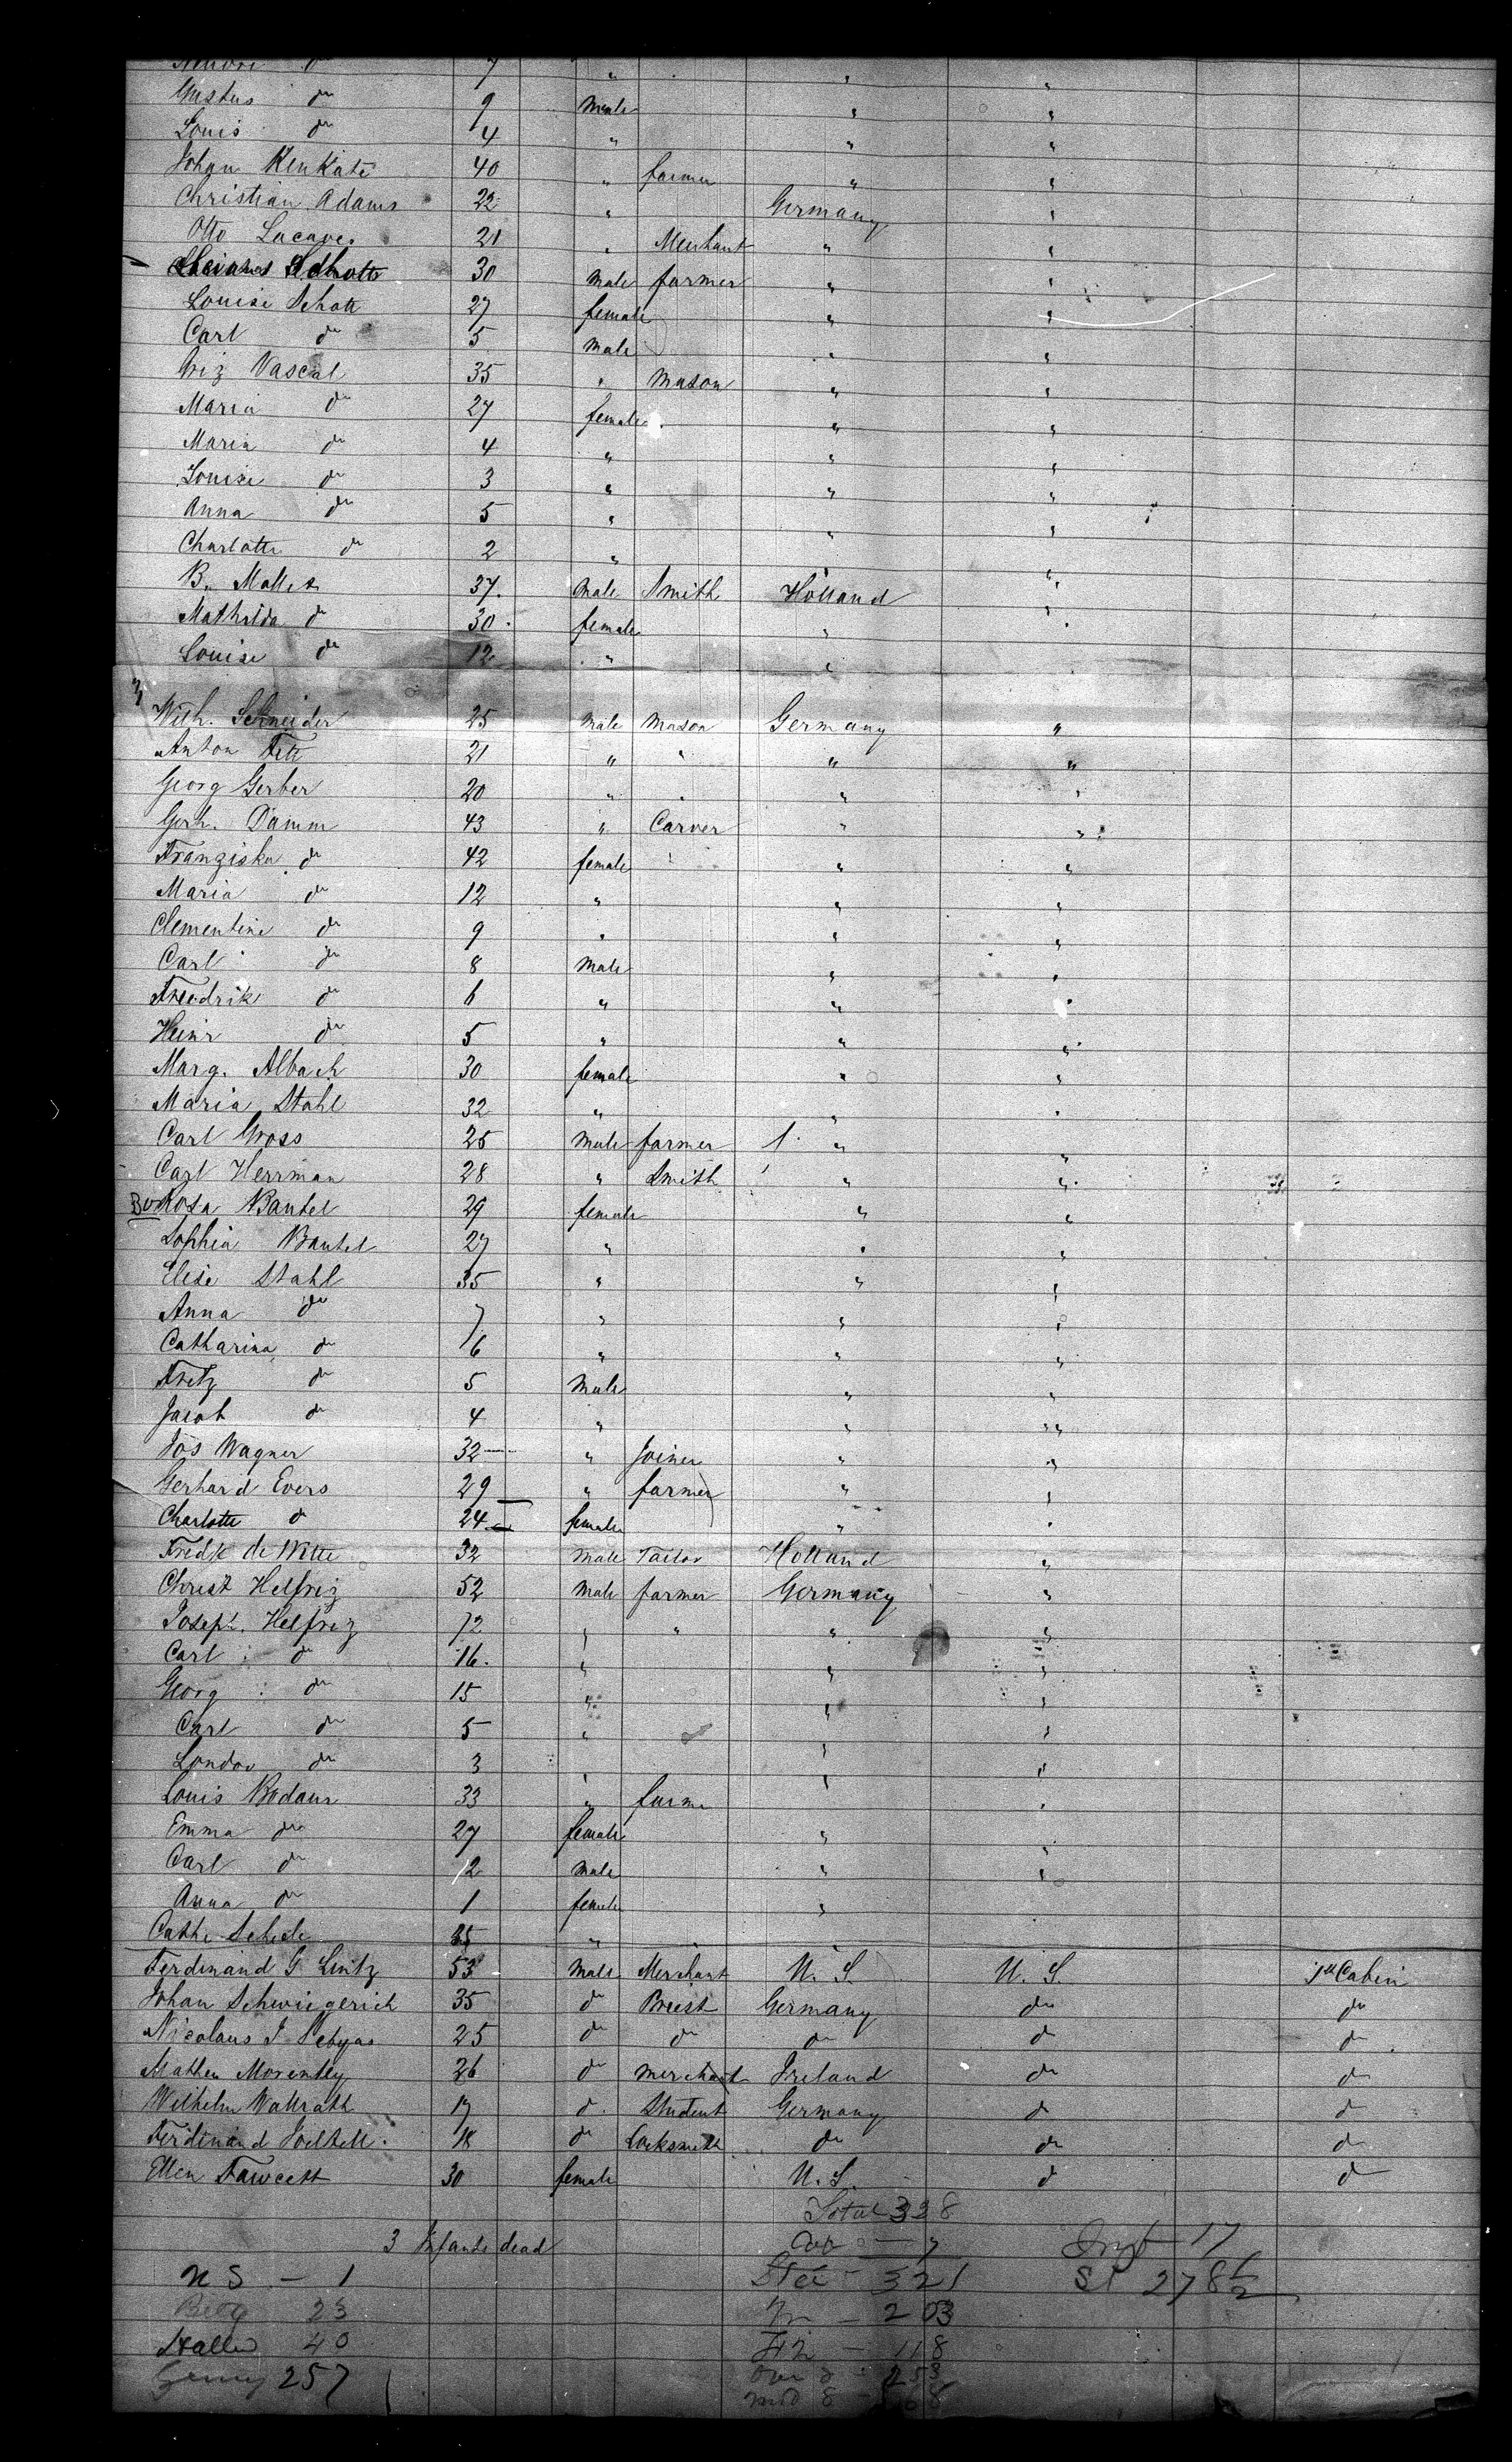 do 7 "
Gustus do 9 male " "
Louis do 4 " " "
Johan Kenkate 40 " farmer " "
Christian Adams 22 " Germany "
Otto 21 " Merchant " "
Schott 30 male farmer " "
Louise Schott 27 female " "
Carl do 5 male " "
Vascal 35 " Mason " "
Maria do 27 female " "
Maria do 4 " " "
Louise do 3 " " "
Anna do 5 " " "
Charlotte do 2 " " "
B. 37. male Smith Holland "
Mathilda do 30. female " "
Louise do 12 " " "
Wilh. Schneider 25 male Mason Germany "
Anton 21 " " " "
Georg Gerber 20 " " " "
Gerh. Damm 43 " Carver " "
Franziska do 42 female " "
Maria do 12 " " "
Clementine do 9 " " "
Carl do 8 male " "
Freedrik do 6 " " "
Heinr do 5 " " "
Marg. Albach 30 female " "
Maria Stahl 32 " " "
Carl Gross 25 male farmer " "
Carl Herrman 28 " Smith " "
Rosa Bantel 29 female " "
Sophia Bantel 27 " " "
Elise Stahl 35 " " "
Anna do 7 " " "
Catharina do 6 " " "
Fritz do 5 male " "
Jacob do 4 " " "
Jos Wagner 32 " Joiner " "
Gerhard Evers 29 " farmer " "
Charlotte do 24 female " "
Fredk de Witte 32 male Tailor Holland "
Christ Helfriz 52 male farmer Germany "
Joseph. Helfriz 12 " " " "
Carl do 16. " " "
Georg do 15 " " "
Carl do 5 " " "
do 3 " " "
Louis Bodaur 33 " farme "
Emma do 27 female " "
Carl do 2 male " "
Anna do 1 female "
Cathe 35 "
Ferdinand G Lintz 53 male Merchant U. S. U. S. 1st Cabin
Johan Schwiegerich 35 do Preest Germany do do
Nicolaus J 25 do do do d do
Mathew 26 do merchant Ireland do do
Wilhelm Wallrath 17 d. Student Germany d d
Ferdinand 18 do Locksmith do do do
Ellen Fawcett 30 female U. S. d d
Total 328
3 Infants dead Cab 7 17
U S - 1 Stee - 321 St 278 1/2
Belg 23 m - 203
Hollw 40 118
Germy 257 over 8
und 8